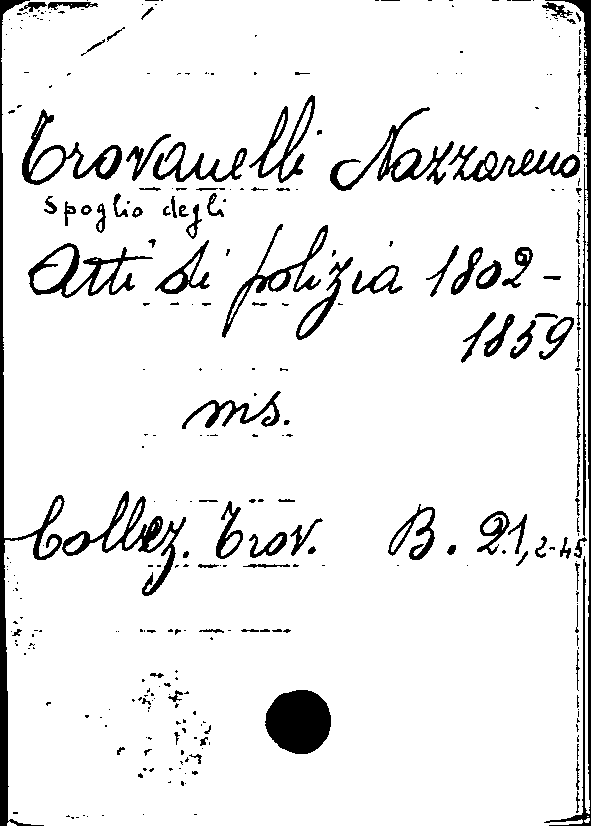 Trovanelli Nazzareno
Spoglio degli
Atti di polizia 1802-
1859
ms.
Collez. Trov. B. 21, 2-45